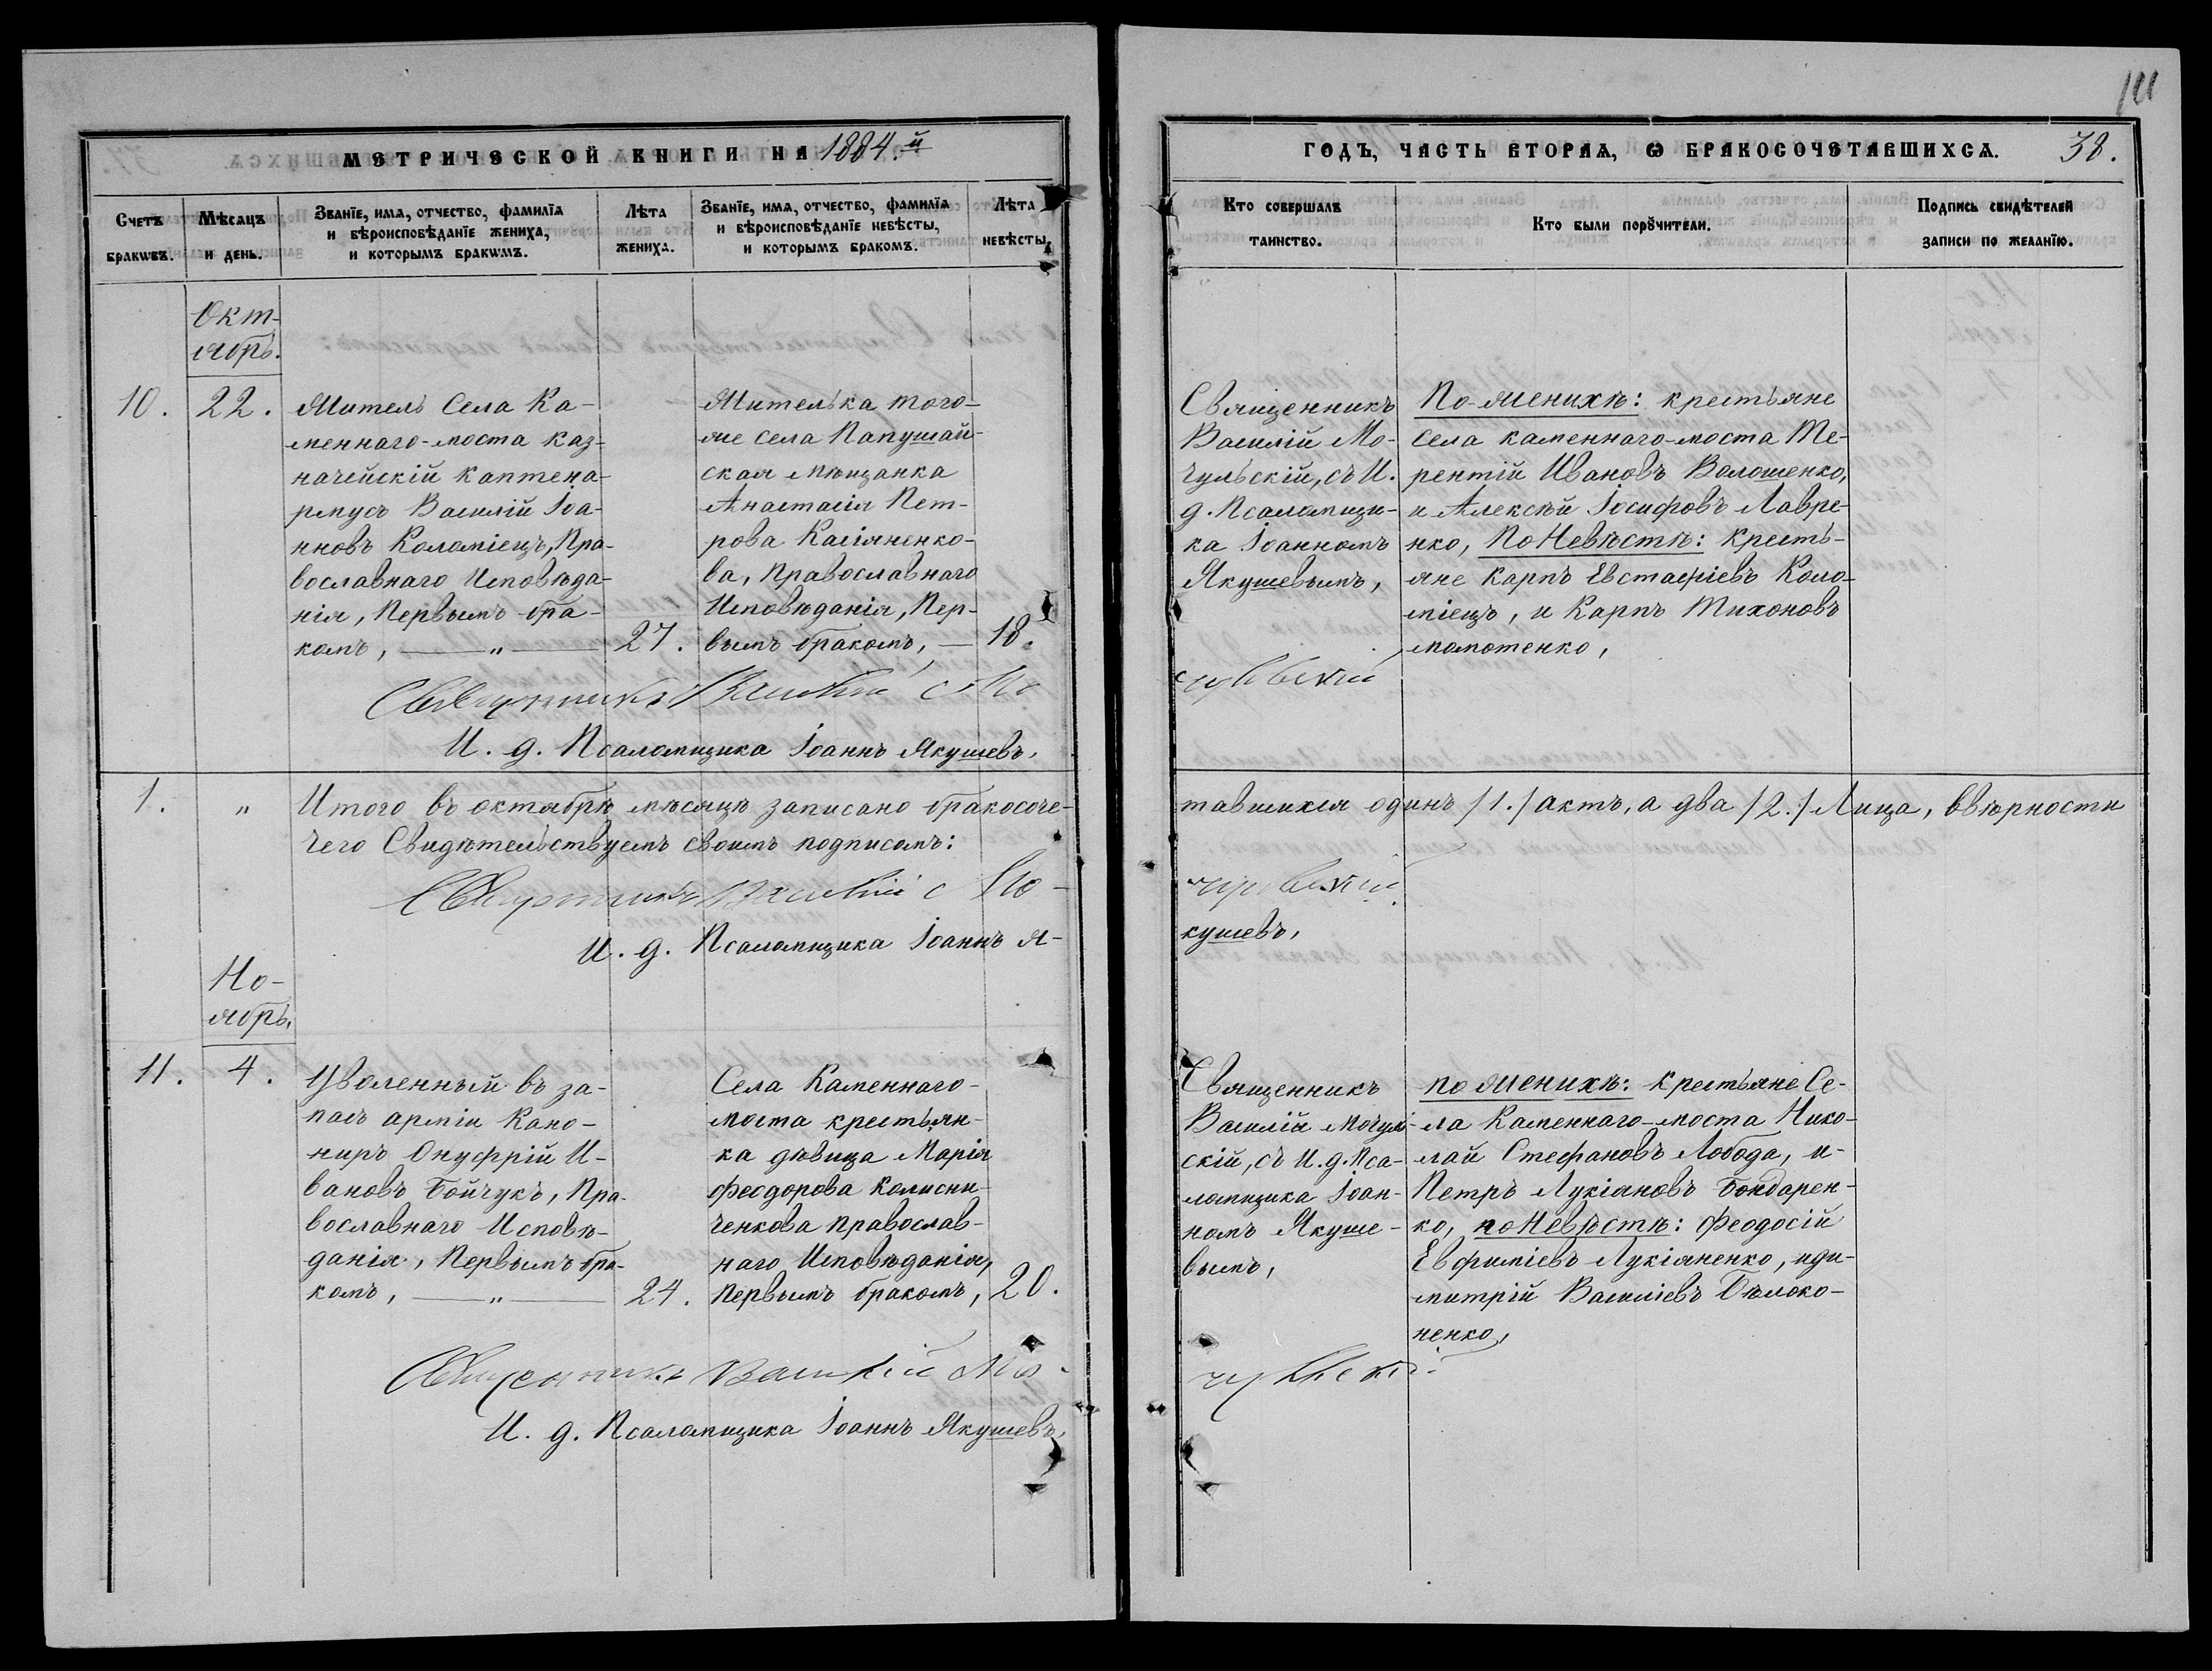 111
МЕТРИЧЕСКОЙ КНИГИ НА 1884.й
ГОДЪ, ЧАСТЬ ВТОРАЯ, Ѡ БРАКОСОЧЕТАВШИХСЯ. 38.
Счетъ браковъ.
Мѣсяцъ и день.
Званїе, имя, отчество, фамилїя
и вѣроисповѣданїе жениха,
и которымъ бракомъ.
Лѣта
жениха.
Званїе, имя, отчество, фамилїя
и вѣроисповѣданїе невѣсты,
и которымъ бракомъ.
Лѣта
невѣсты.
Кто совершалъ
таинство.
Кто были порꙋчители.
Подпись свидѣтелей
записи по желанїю.
Окт-
ябрь.
10.
22.
Житель Села Ка-
меннаго-моста каз-
начейскій каптена-
рмусъ Василій Іоа-
нновъ Коломіецъ, Пра-
вославнаго Исповѣда-
нія, Первымъ бра-
комъ, — „ —
27.
Жителька того-
же села Папушай-
ская мѣщанка
Анастасія Пет-
рова Касіяненко-
ва, Православнаго
Исповѣданія, Пер-
вымъ бракомъ, —
18.
Священникъ
Василій Мо-
чульскій, съ И.
д. Псаломщи-
ка Іоанномъ
Якушевымъ,
По женихѣ: крестьяне
села каменнаго-моста Те-
рентій Ивановъ Волошенко,
и Алексѣй Іосифовъ Лавре-
нко, По Невѣстѣ: Кресть-
яне Карпъ Евстафіевъ Коло-
міецъ, и Карпъ Тихоновъ
мамотенко,
Священникъ Василій Мо-
чульскій
И. д. Псаломщика Іоаннъ Якушевъ,
1.
„
Итого въ октябрѣ мѣсяцѣ записано бракосоче-
тавшихся одинъ /1./ актъ, а два /2./ Лица, ввѣрности
чего Свидѣтельствуемъ своимъ подписомъ:
Священникъ Василій Мо-
чульскій
И. д. Псаломщика Іоаннъ Я-
кушевъ,
Но-
ябрь,
11.
4.
Уволенный въ за-
пасъ арміи Кано-
ниръ Онуфрій И-
вановъ Бойчукъ, Пра-
вославнаго Исповѣ-
данія, Первымъ бра-
комъ, — „ —
24.
Села Каменнаго-
моста крестьян-
ка дѣвица Марія
Феодорова Колисни-
ченкова православ-
наго Исповѣданія,
Первымъ бракомъ,
20.
Священникъ
Василій Мочуль-
скій, съ И. д. Пса-
ломщика Іоан-
номъ Якуше-
вымъ,
по женихѣ: крестьяне Се-
ла Каменнаго-моста Нико-
лай Стефановъ Лобода, и-
Петръ Лукіановъ Бондарен-
ко, по Невѣстѣ: Феодосій
Евфиміевъ Лукіяненко, иди-
митрій Василіевъ Бѣлоко-
ненко,
Священникъ Василій Мо-
чульскій
И. д. Псаломщика Іоаннъ Якушевъ,